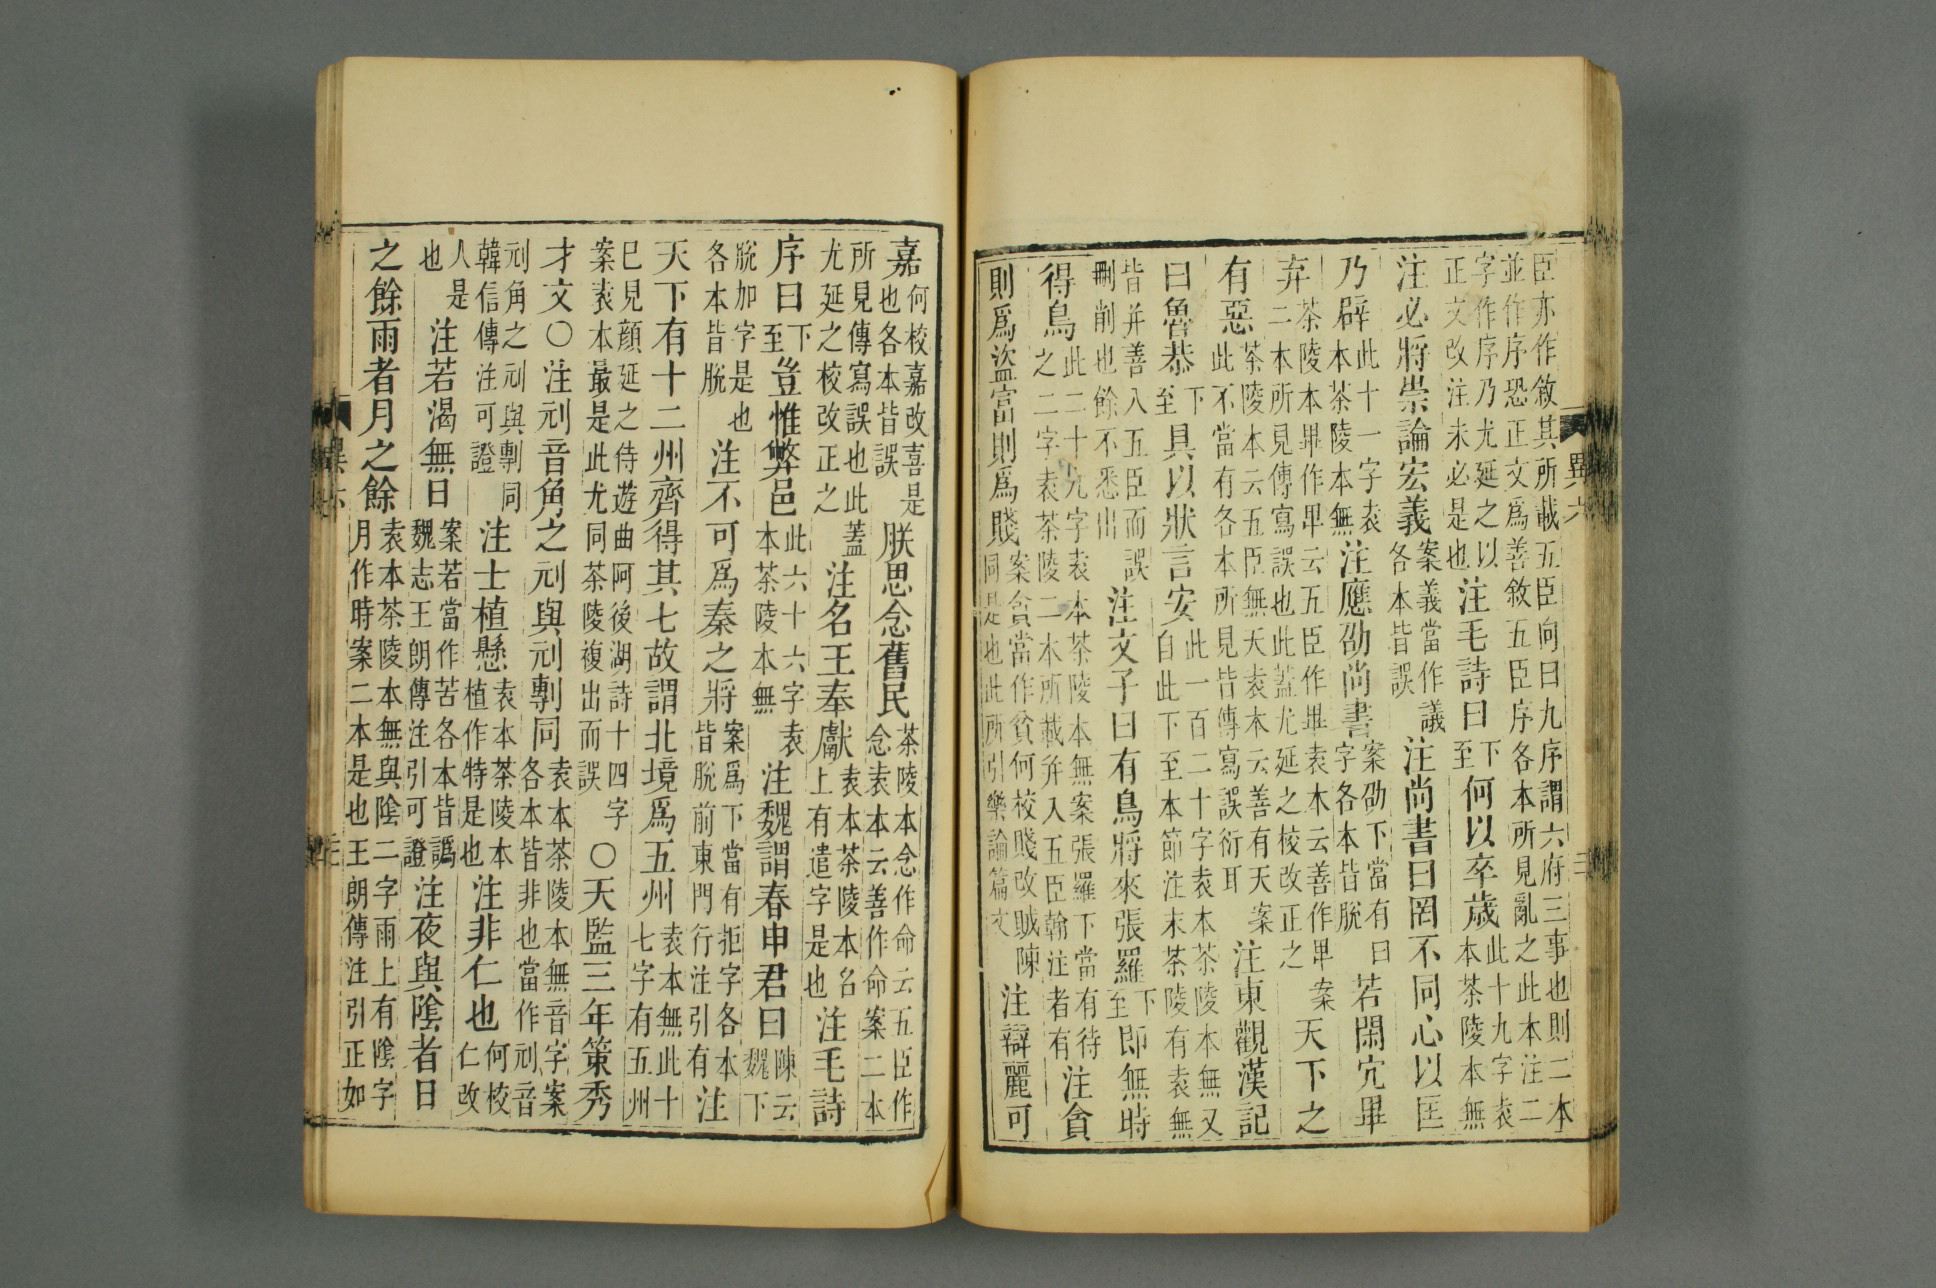 異六
三
臣亦作敘其所載五臣向曰九序謂六府三事也則二本
並作序恐正文爲善敘五臣序各本所見亂之此本注二
字作序乃尤延之以正文改注未必是也注毛詩曰下至何以卒歲此十九字袁本茶陵本無
注必將崇論宏義案義當作議各本皆誤注尚書曰罔不同心以匡
乃辟此十一字袁本茶陵本無注應劭尚書案劭下當有曰字各本皆脫若閑宂畢
弃茶陵本畢作畢云五臣作畢袁本云善作畢案二本所見傳寫誤也此蓋尤延之校改正之天下之
有惡茶陵本云五臣無天袁本云善有天案此不當有各本所見皆傳寫誤衍耳注東觀漢記
曰魯恭下至具以狀言安此一百二十字袁本茶陵本無又自此下至本節注末茶陵有袁無
皆并善入五臣而誤刪削也餘不悉出注文子曰有鳥將來張羅下至即無時
得鳥此二十九字袁本茶陵本無案張羅下當有待之二字袁茶陵二本所載并入五臣翰注者有注貪
則爲盜富則爲賤案貪當作貧何校賤改賊陳同是也此所引樂論篇文注辯麗可
嘉何校嘉改喜是也各本皆誤朕思念舊民茶陵本念作命云五臣作念袁本云善作命案二本
所見傳寫誤也此蓋尤延之校改正之注名王奉獻袁本茶陵本名上有遣字是也注毛詩
序曰下至豈惟弊邑此六十六字袁本茶陵本無注魏謂春申君曰陳云魏下
脫加字是也各本皆脫注不可爲秦之將案爲下當有拒字各本皆脫前東門行注引有注
天下有十二州齊得其七故謂北境爲五州袁本無此十七字有五州
巳見顏延之待遊曲阿後湖詩十四字案袁本最是此尤同茶陵複出而誤○天監三年策秀
才文○注刓音角之刓與刓剸同袁本茶陵本無音字案各本皆非也當作刓音
刓角之刓與剸同韓信傳注可證注士植懸袁本茶陵本植作特是也注非仁也何校仁改
人是也注若渴無日案若當作苦各本皆譌魏志王朗傳注引可證注夜與陰者日
之餘雨者月之餘袁本茶陵本無與陰二字雨上有陰字月作時案二本是也王朗傳注引正如